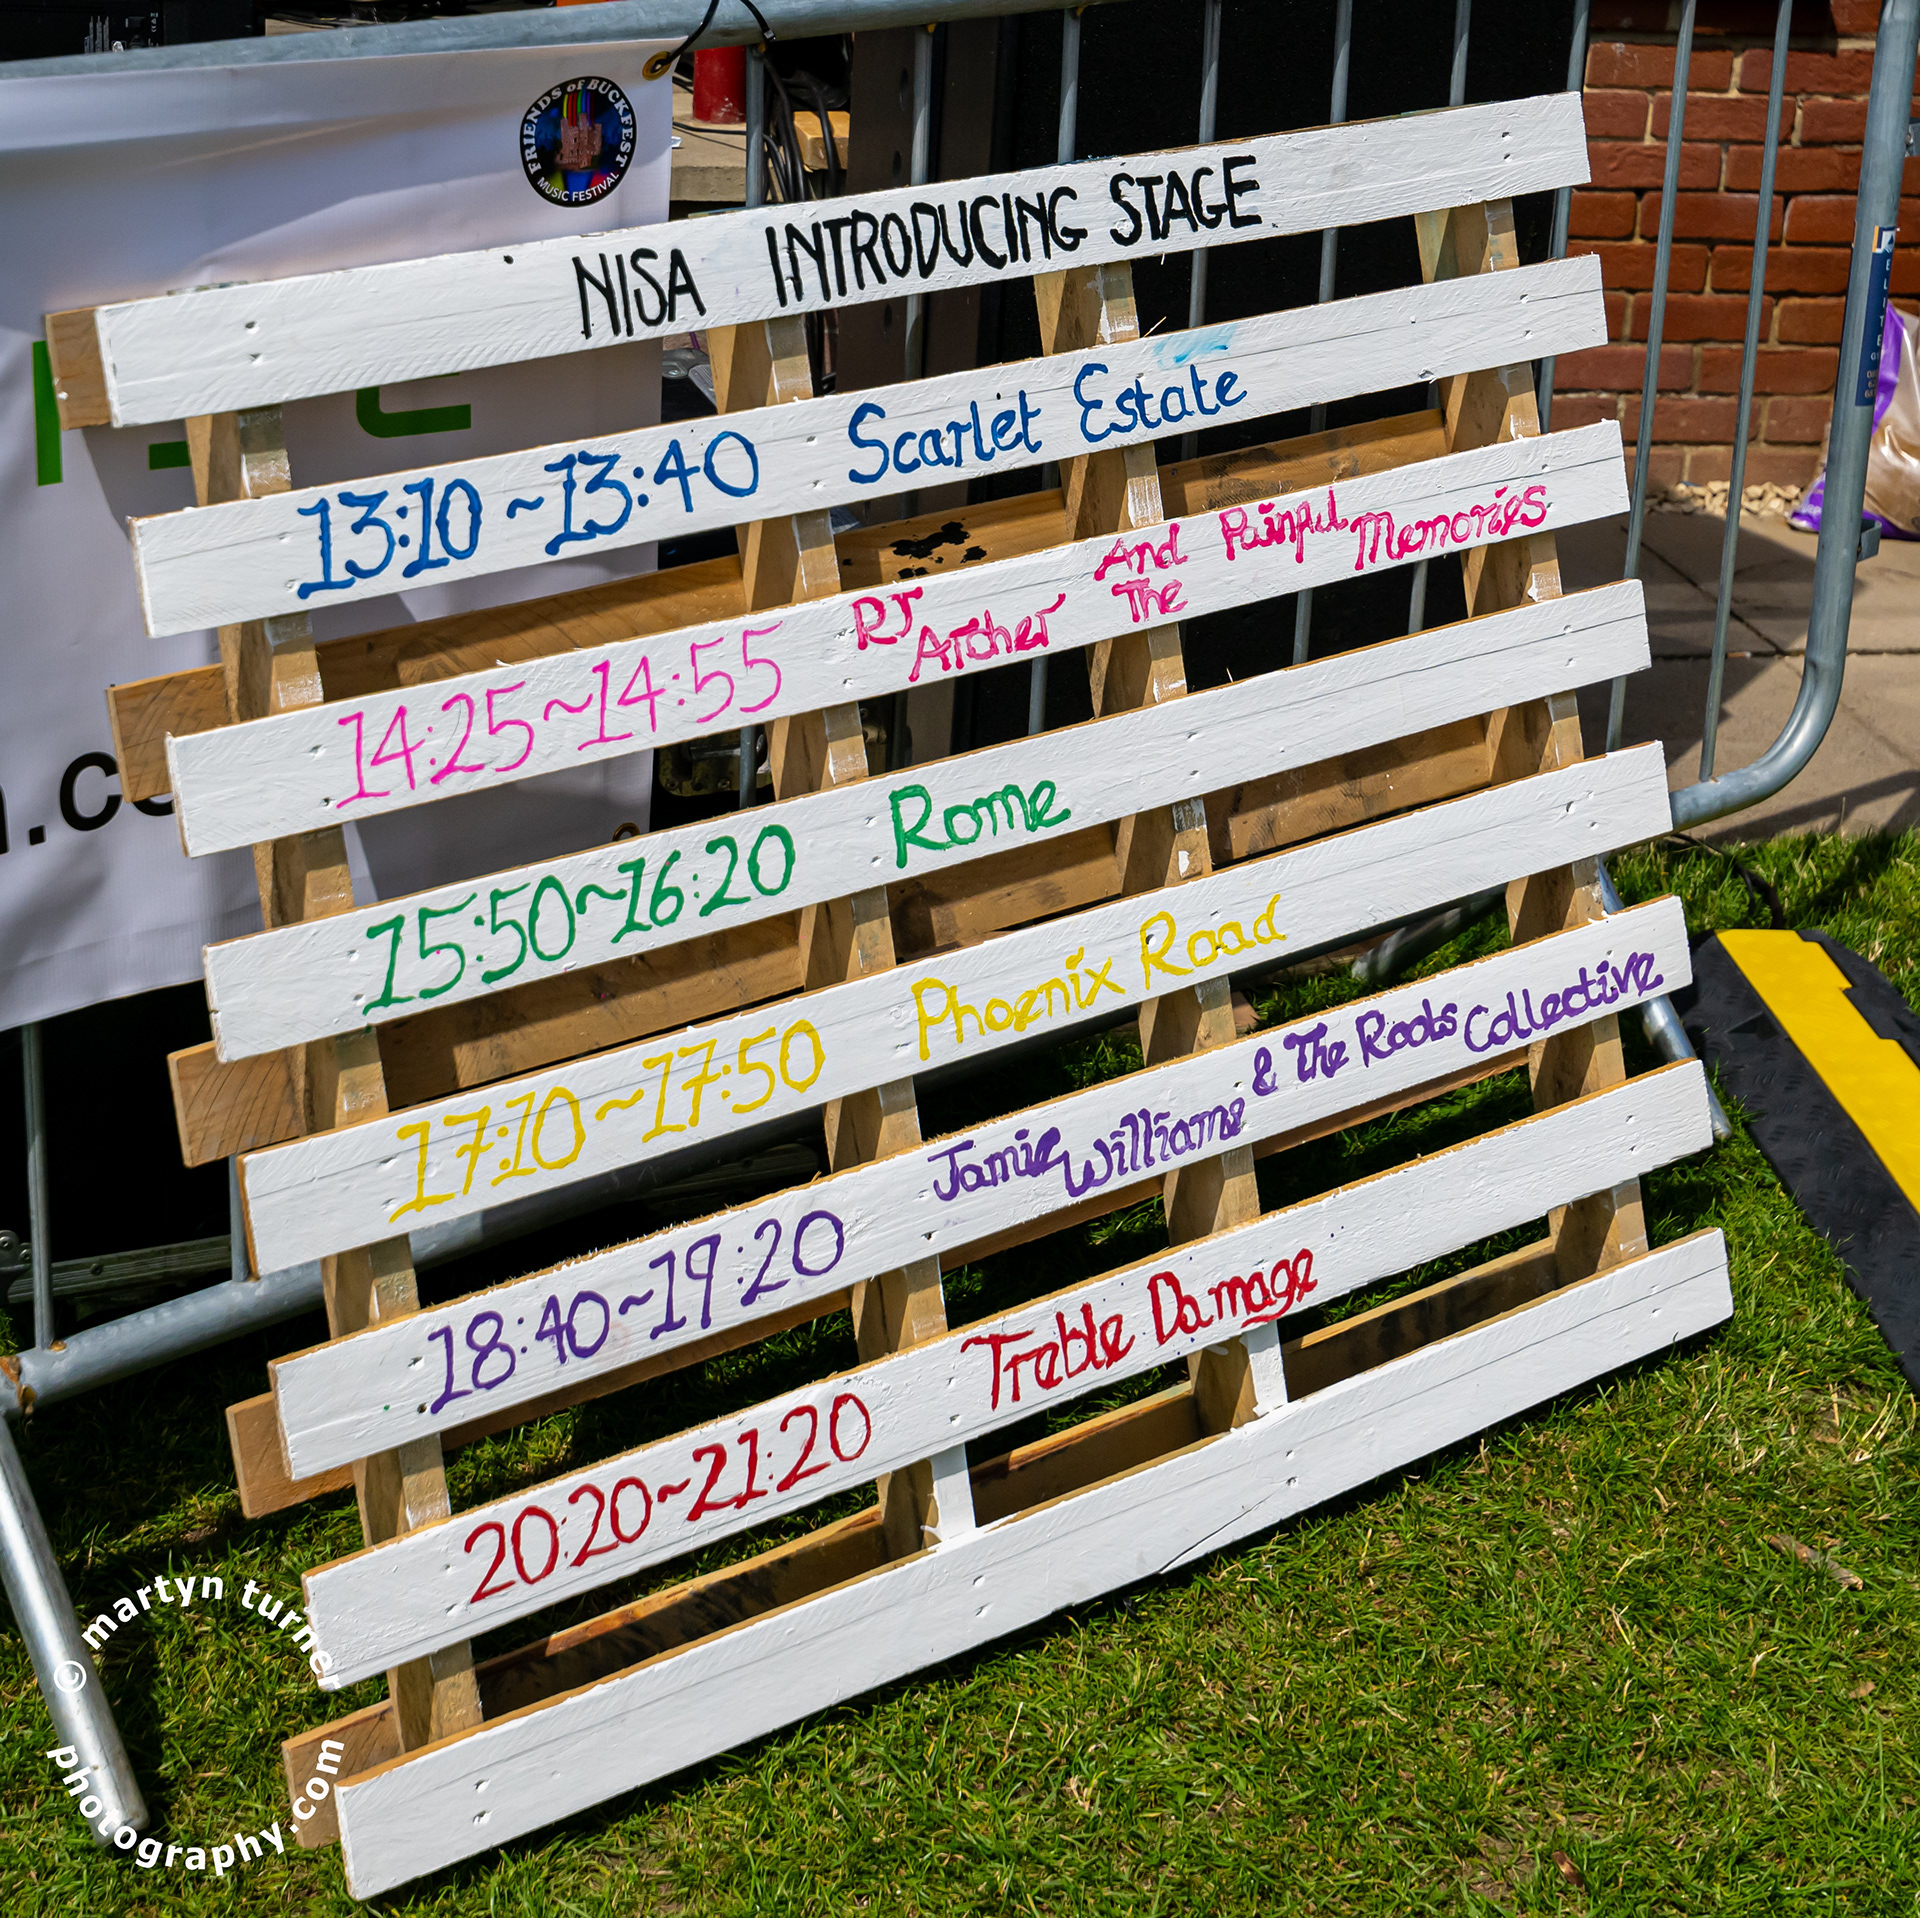 FRIENDS of BUCKFEST
MUSIC FESTIVAL
NISA INTRODUCING STAGE
13:10 ~ 13:40 Scarlet Estate
14:25 ~ 14:55 RJ Archer And The Painful Memories
15:50 ~ 16:20 Rome
17:10 ~ 17:50 Phoenix Road
18:40 ~ 19:20 Jamie Williams & The Roots Collective
20:20 ~ 21:20 Treble Damage
ELITE
© martyn turner
photography.com